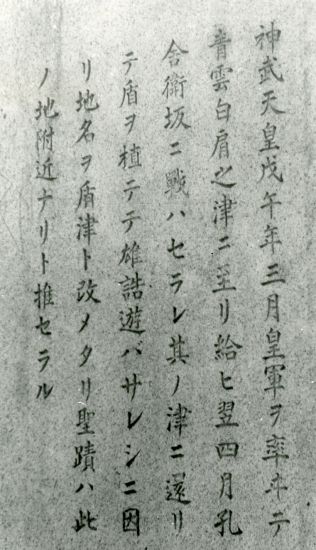 神武天皇戊午年三月皇軍ヲ率ヰテ
青雲白肩之津ニ至リ給ヒ翌四月孔
舎衛坂ニ戰ハセラレ其ノ津ニ還リ
テ盾ヲ植テテ雄誥遊バサレシニ因
リ地名ヲ盾津ト改メタリ聖蹟ハ此
ノ地附近ナリト推セラル